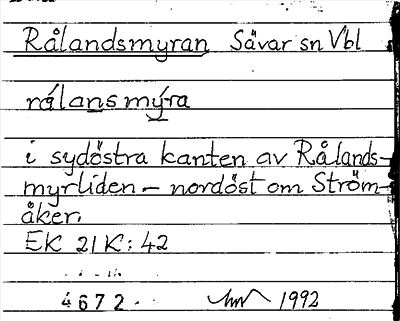 Rålandsmyran Sävar sn Vbl
rålans mýra
i sydöstra kanten av Rålands-
myrliden - nordöst om Ström-
åker.
EK 21K: 42
4672 1992